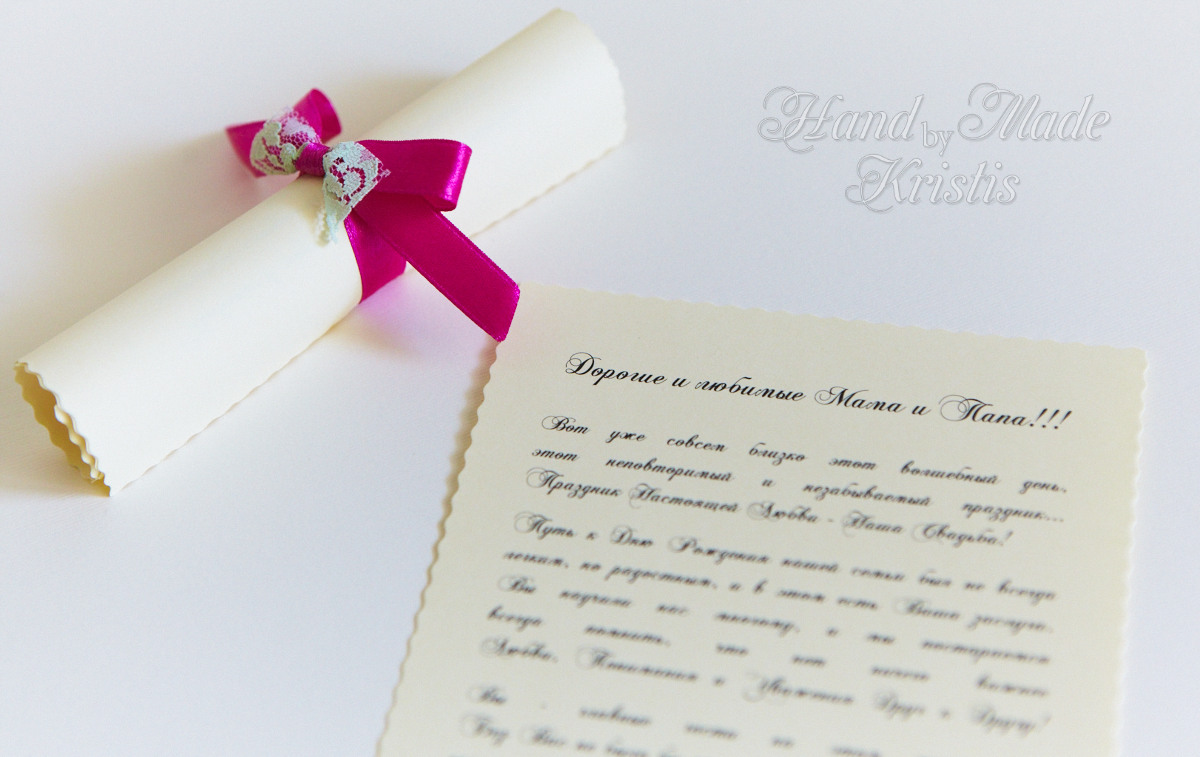 Hand by Made
Kristis
Дорогие и любимые Мама и Папа!!!
Вот уже совсем близко этот волшебный день,
этот неповторимый и незабываемый праздник...
Праздник Настоящей Любви - Наша Свадьба!
Путь к Дню Рождения нашей семьи был не всегда
легким, но радостным, и в этом есть Ваша заслуга.
Вы научили нас многому, и мы постараемся
всегда помнить, что нет ничего важнее
Любви, Понимания и Уважения Друг к Другу!
Вы